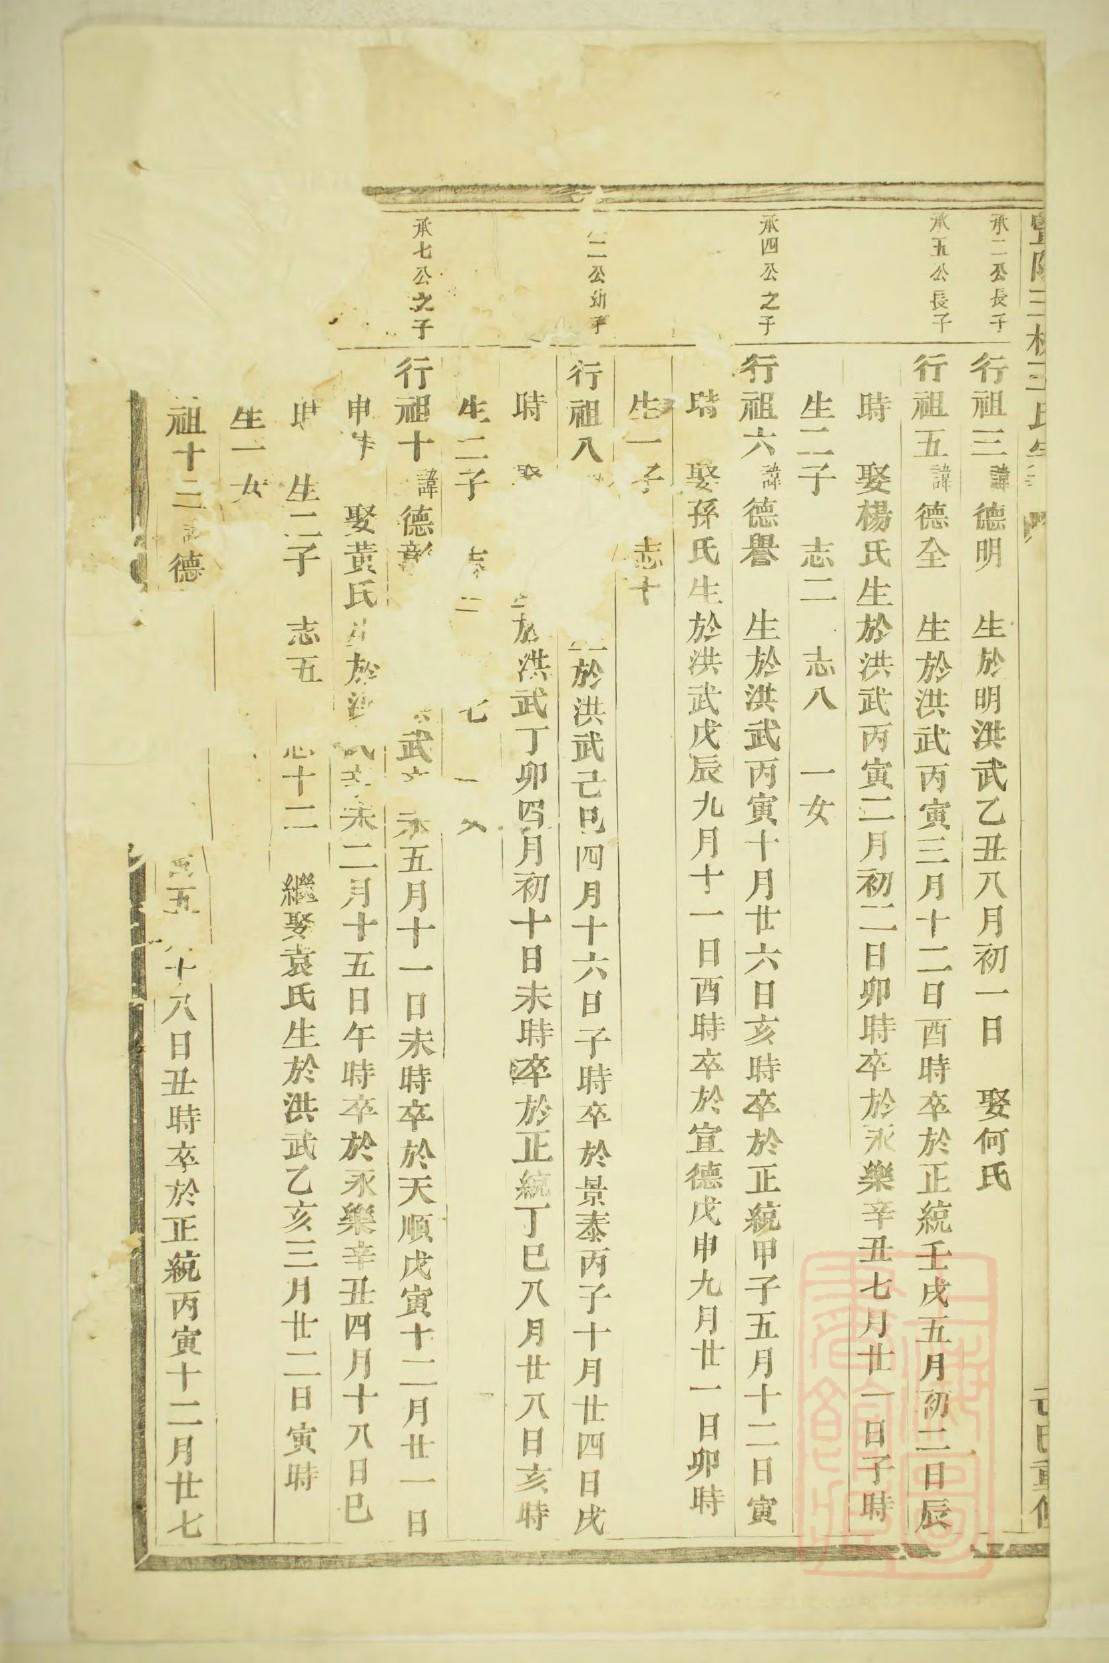 承二公長子
行祖三諱德明 生於明洪武乙丑八月初一日 娶何氏
承五公長子
行祖五諱德全 生於洪武丙寅三月十二日酉時卒於正統壬戌五月初二日辰
時 娶楊氏生於洪武丙寅二月初二日卯時卒於永樂辛丑七月廿一日子時
生二子 志二 志八 一女
承四公之子
行祖六諱德譽 生於洪武丙寅十月廿六日亥時卒於正統甲子五月十二日寅
時 娶孫氏生於洪武戊辰九月十一日酉時卒於宣德戊申九月廿一日卯時
生一子 志十
二公幼子
行祖八 於洪武己巳四月十六日子時卒於景泰丙子十月廿四日戌
時 於洪武丁卯四月初十日未時卒於正統丁巳八月廿八日亥時
生二子 七
承七公之子
行祖十諱德彰 武 五月十一日未時卒於天順戊寅十二月廿一日
申時 娶黃氏 於 未二月十五日午時卒於永樂辛丑四月十八日巳
時 生二子 志五 志十二 繼娶袁氏生於洪武乙亥三月廿二日寅時
生一女
祖十二 德 五 十八日丑時卒於正統丙寅十二月廿七